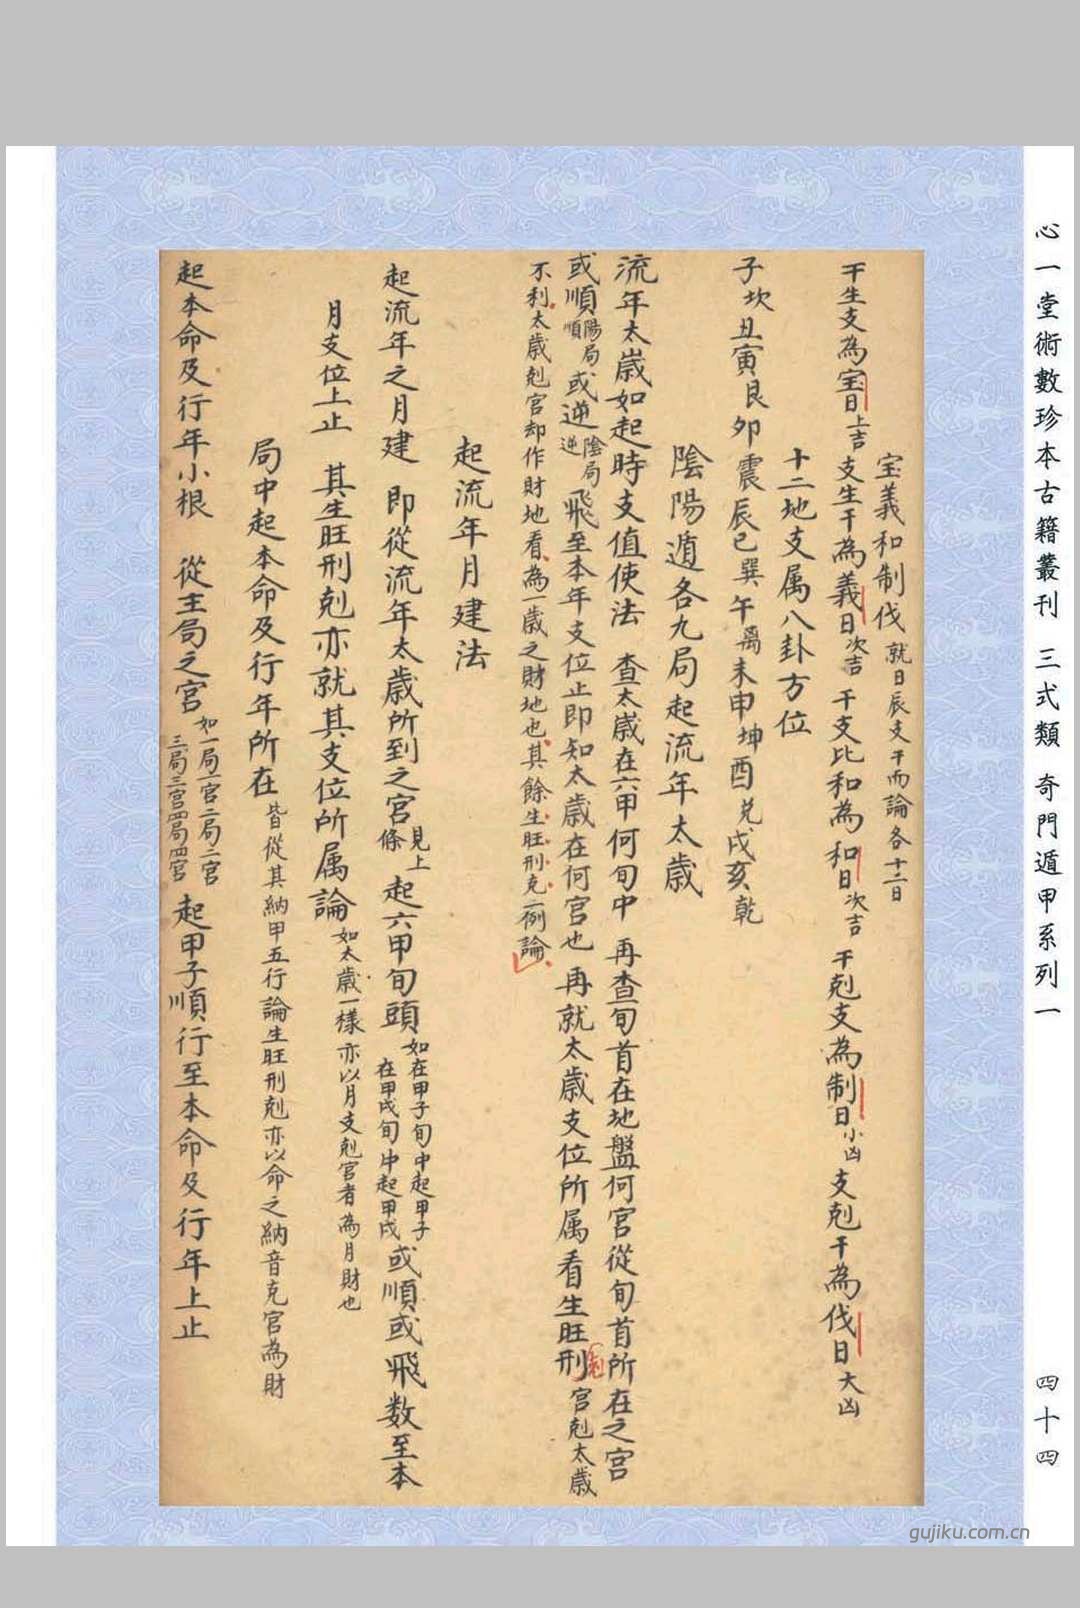 心一堂術數珍本古籍叢刊 三式類 奇門遁甲系列一
四十四
宝義和制伐 就日辰支干而論各十二日
干生支為宝日上吉 支生干為義日次吉 干支比和為和日次吉 干剋支為制日小凶 支剋干為伐日大凶
十二地支属八卦方位
子坎丑寅艮夘震辰巳巽午离未申坤酉兑戌亥乾
陰陽遁各九局起流年太歲
流年太歲如起時支值使法 查太歲在六甲何旬中 再查旬首在地盤何宮從旬首所在之宮
或順陽局順或逆陰局逆飛至本年支位止即知太歲在何宮也 再就太歲支位所属看生旺刑剋宮剋太歲
不利太歲剋宮却作財地看為一歲之財地也其餘生旺刑克一例論
起流年月建法
起流年之月建 即從流年太歲所到之宮見上條 起六甲旬頭如在甲子旬中起甲子在甲戌旬中起甲戌或順或飛数至本
月支位上止 其生旺刑剋亦就其支位所属論如太歲一樣亦以月支剋宮者為月財也
局中起本命及行年所在皆從其納甲五行論生旺刑剋亦以命之納音克宮為財
起本命及行年小根 從主局之宮如一局一宮二局二宮三局三宮四局四宮 起甲子順行至本命及行年上止
gujiku.com.cn